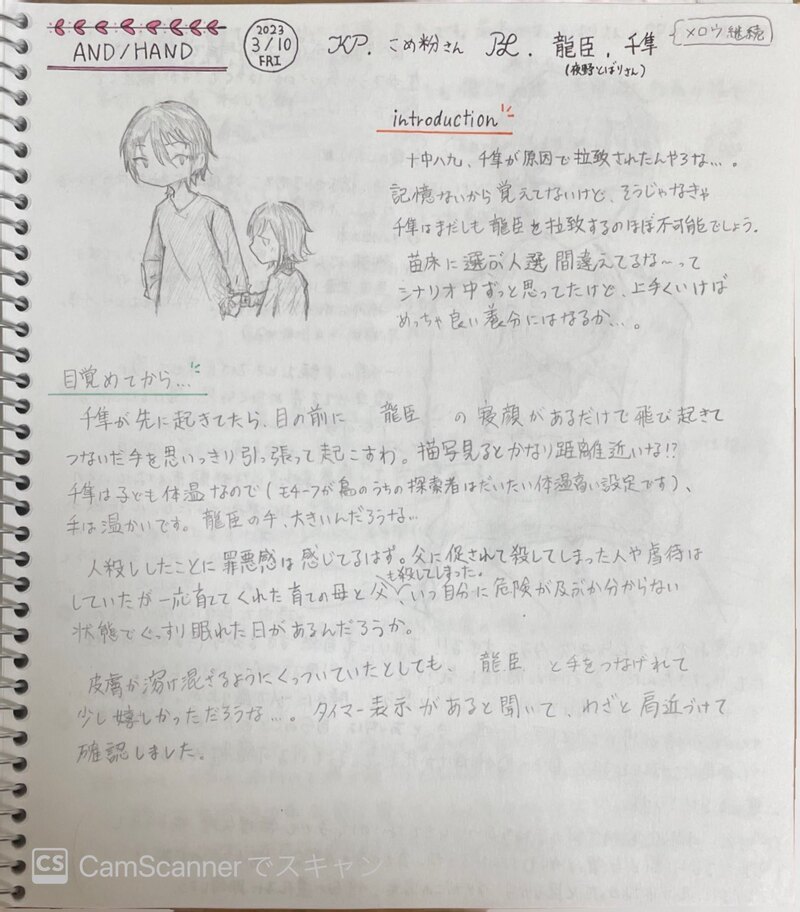 AND/HAND
2023
3/10
FRI
KP. こめ粉さん PL. 龍臣、千隼
(夜野とばりさん)
メロウ継続
introduction
十中八九、千隼が原因で拉致されたんやろな…。
記憶ないから覚えてないけど、そうじゃなきゃ
千隼はまだしも龍臣を拉致するのほぼ不可能でしょう。
苗床に選ぶ人選間違えてるな〜って
シナリオ中ずっと思ってたけど、上手くいけば
めっちゃ良い養分にはなるか…。
目覚めてから…
千隼が先に起きてたら、目の前に 龍臣 の寝顔があるだけで飛び起きて
つないだ手を思いっきり引っ張って起こすわ。描写見るとかなり距離近いな!?
千隼は子ども体温なので(モチーフが鳥のうちの探索者はだいたい体温高い設定です)、
手は温かいです。龍臣の手、大きいんだろうな…
人殺ししたことに罪悪感は感じてるはず。父に促されて殺してしまった人や虐待は
していたが一応育ててくれた育ての母と父も殺してしまった。いつ自分に危険が及ぶか分からない
状態でぐっすり眠れた日があるんだろうか。
皮膚が溶け混ざるようにくっついていたとしても、 龍臣 と手をつなげれて
少し嬉しかっただろうな…。タイマー表示があると聞いて、わざと肩近づけて
確認しました。
CS CamScannerでスキャン